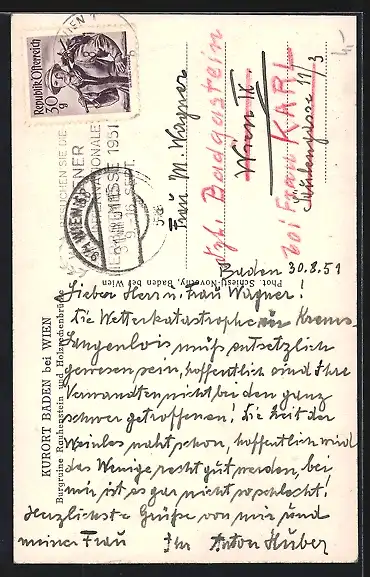 WIEN 1
Republik Österreich
30 g
BESUCHEN SIE DIE
WIENER
INTERNATIONALE
MESSE 1951
9.-16. SEPT.
9/4 WIEN 68
KURORT BADEN bei WIEN
Burgruine Rauhenstein und Holzrechenbrücke
Phot. Schiestl-Novelty, Baden bei Wien
Frau M. Wagner
dzt. Badgastein
Wien IX
bei Frau KARL
11/3
Baden 30.8.51
Lieber Herr u. Frau Wagner!
Die Wetterkatastrophe in Krems-
Langenlois muß entsetzlich
gewesen sein, hoffentlich sind Ihre
Verwandten nicht bei den ganz
schwer getroffenen! Die Zeit der
Weinlese naht schon, hoffentlich wird
das Wenige recht gut werden, bei
mir ist es gar nicht so schlecht!
Herzlichste Grüße von mir und
meiner Frau Ihr Anton Huber